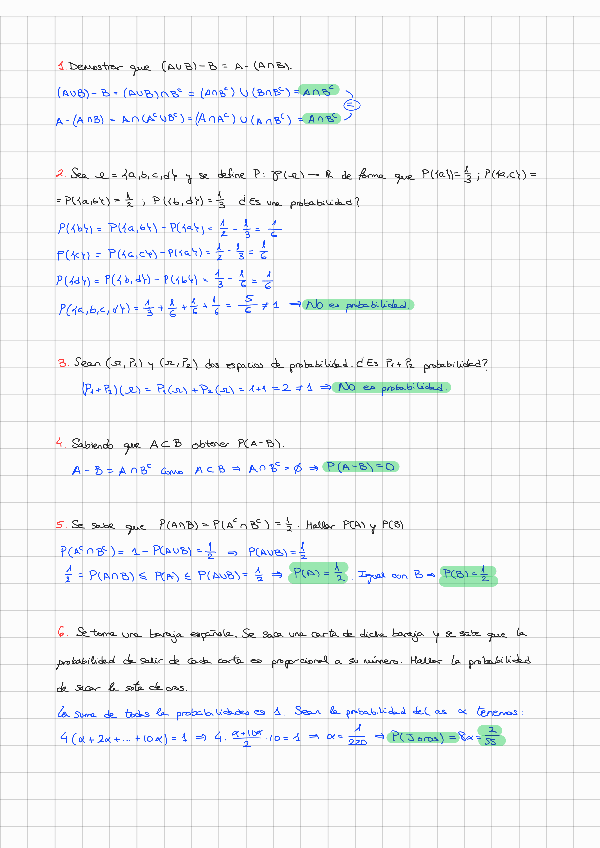 1. Demostrar que (A∪B)-B = A-(A∩B).
(A∪B)-B = (A∪B)∩Bᶜ = (A∩Bᶜ)∪(B∩Bᶜ) = A∩Bᶜ
A-(A∩B) = A∩(Aᶜ∪Bᶜ) = (A∩Aᶜ)∪(A∩Bᶜ) = A∩Bᶜ
=
2. Sea Ω = {a,b,c,d} y se define P: P(Ω) → R de forma que P({a}) = 1/3 ; P({a,c}) =
= P({a,b}) = 1/2 , P({b,d}) = 1/3 ¿Es una probabilidad?
P({b}) = P({a,b}) - P({a}) = 1/2 - 1/3 = 1/6
P({c}) = P({a,c}) - P({a}) = 1/2 - 1/3 = 1/6
P({d}) = P({b,d}) - P({b}) = 1/3 - 1/6 = 1/6
P({a,b,c,d}) = 1/3 + 1/6 + 1/6 + 1/6 = 5/6 ≠ 1 → No es probabilidad.
3. Sean (Ω,P₁) y (Ω,P₂) dos espacios de probabilidad. ¿Es P₁+P₂ probabilidad?
(P₁+P₂)(Ω) = P₁(Ω) + P₂(Ω) = 1+1 = 2 ≠ 1 ⇒ No es probabilidad.
4. Sabiendo que A⊂B obtener P(A-B).
A-B = A∩Bᶜ como A⊂B ⇒ A∩Bᶜ = ∅ ⇒ P(A-B) = 0
5. Se sabe que P(A∩B) = P(Aᶜ∩Bᶜ) = 1/2. Hallar P(A) y P(B)
P(Aᶜ∩Bᶜ) = 1 - P(A∪B) = 1/2 ⇒ P(A∪B) = 1/2
1/2 = P(A∩B) ≤ P(A) ≤ P(A∪B) = 1/2 ⇒ P(A) = 1/2. Igual con B ⇒ P(B) = 1/2
6. Se toma una baraja española. Se saca una carta de dicha baraja y se sabe que la
probabilidad de salir de cada carta es proporcional a su número. Hallar la probabilidad
de sacar la sota de oros.
La suma de todas la probabilidades es 1. Sean la probabilidad del as α tenemos:
4(α+2α+...+10α) = 1 ⇒ 4·(α+10α)/2·10 = 1 ⇒ α = 1/220 ⇒ P(J oros) = 8α = 2/55